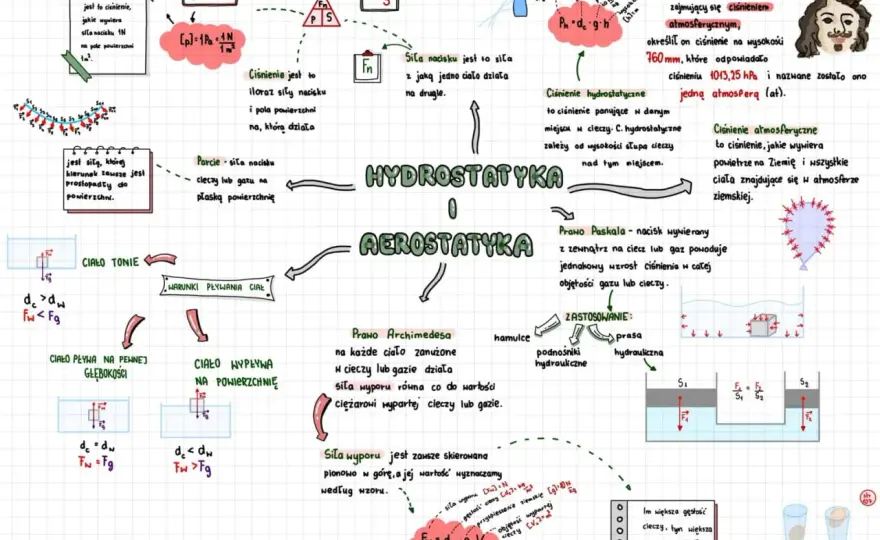 jest to ciśnienie,
jakie wywiera
siła nacisku 1N
na pole powierzchni
1m².
[p]=1Pa=1N
1m²
Fn
P S
S
Fn
Ciśnienie jest to
iloraz siły nacisku
i pola powierzchni
na, którą działa
Siła nacisku jest to siła
z jaką jedno ciało działa
na drugie.
Ph = dc · g · h
Ciśnienie hydrostatyczne
to ciśnienie panujące w danym
miejscu w cieczy. C. hydrostatyczne
zależy od wysokości słupa cieczy
nad tym miejscem.
zajmujący się ciśnieniem
atmosferycznym,
określił on ciśnienie na wysokości
760mm, które odpowiadało
ciśnieniu 1013,25 hPa i nazwane zostało ono
jedną atmosferą (at).
Ciśnienie atmosferyczne
to ciśnienie, jakie wywiera
powietrze na Ziemię i wszystkie
ciała znajdujące się w atmosferze
ziemskiej.
jest siłą, której
kierunek zawsze jest
prostopadły do
powierzchni.
Parcie - siła nacisku
cieczy lub gazu na
płaską powierzchnię
HYDROSTATYKA
I
AEROSTATYKA
Prawo Paskala - nacisk wywierany
z zewnątrz na ciecz lub gaz powoduje
jednakowy wzrost ciśnienia w całej
objętości gazu lub cieczy.
ZASTOSOWANIE:
hamulce
podnośniki
hydrauliczne
prasa
hydrauliczna
S1
F1 = F2
S1 S2
S2
F1
F2
WARUNKI PŁYWANIA CIAŁ
CIAŁO TONIE
Fw
Fg
dc > dw
Fw < Fg
CIAŁO PŁYWA NA PEWNEJ
GŁĘBOKOŚCI
Fw
Fg
dc = dw
Fw = Fg
CIAŁO WYPŁYWA
NA POWIERZCHNIĘ
Fw
Fg
dc < dw
Fw > Fg
Prawo Archimedesa
na każde ciało zanużone
w cieczy lub gazie działa
siła wyporu równa co do wartości
ciężarowi wypartej cieczy lub gazie.
Siła wyporu jest zawsze skierowana
pionowo w górę, a jej wartość wyznaczamy
według wzoru.
siła wyporu
gęstość cieczy
przyspieszenie ziemskie
objętość wypartej
cieczy
Im większa gęstość
cieczy, tym większa